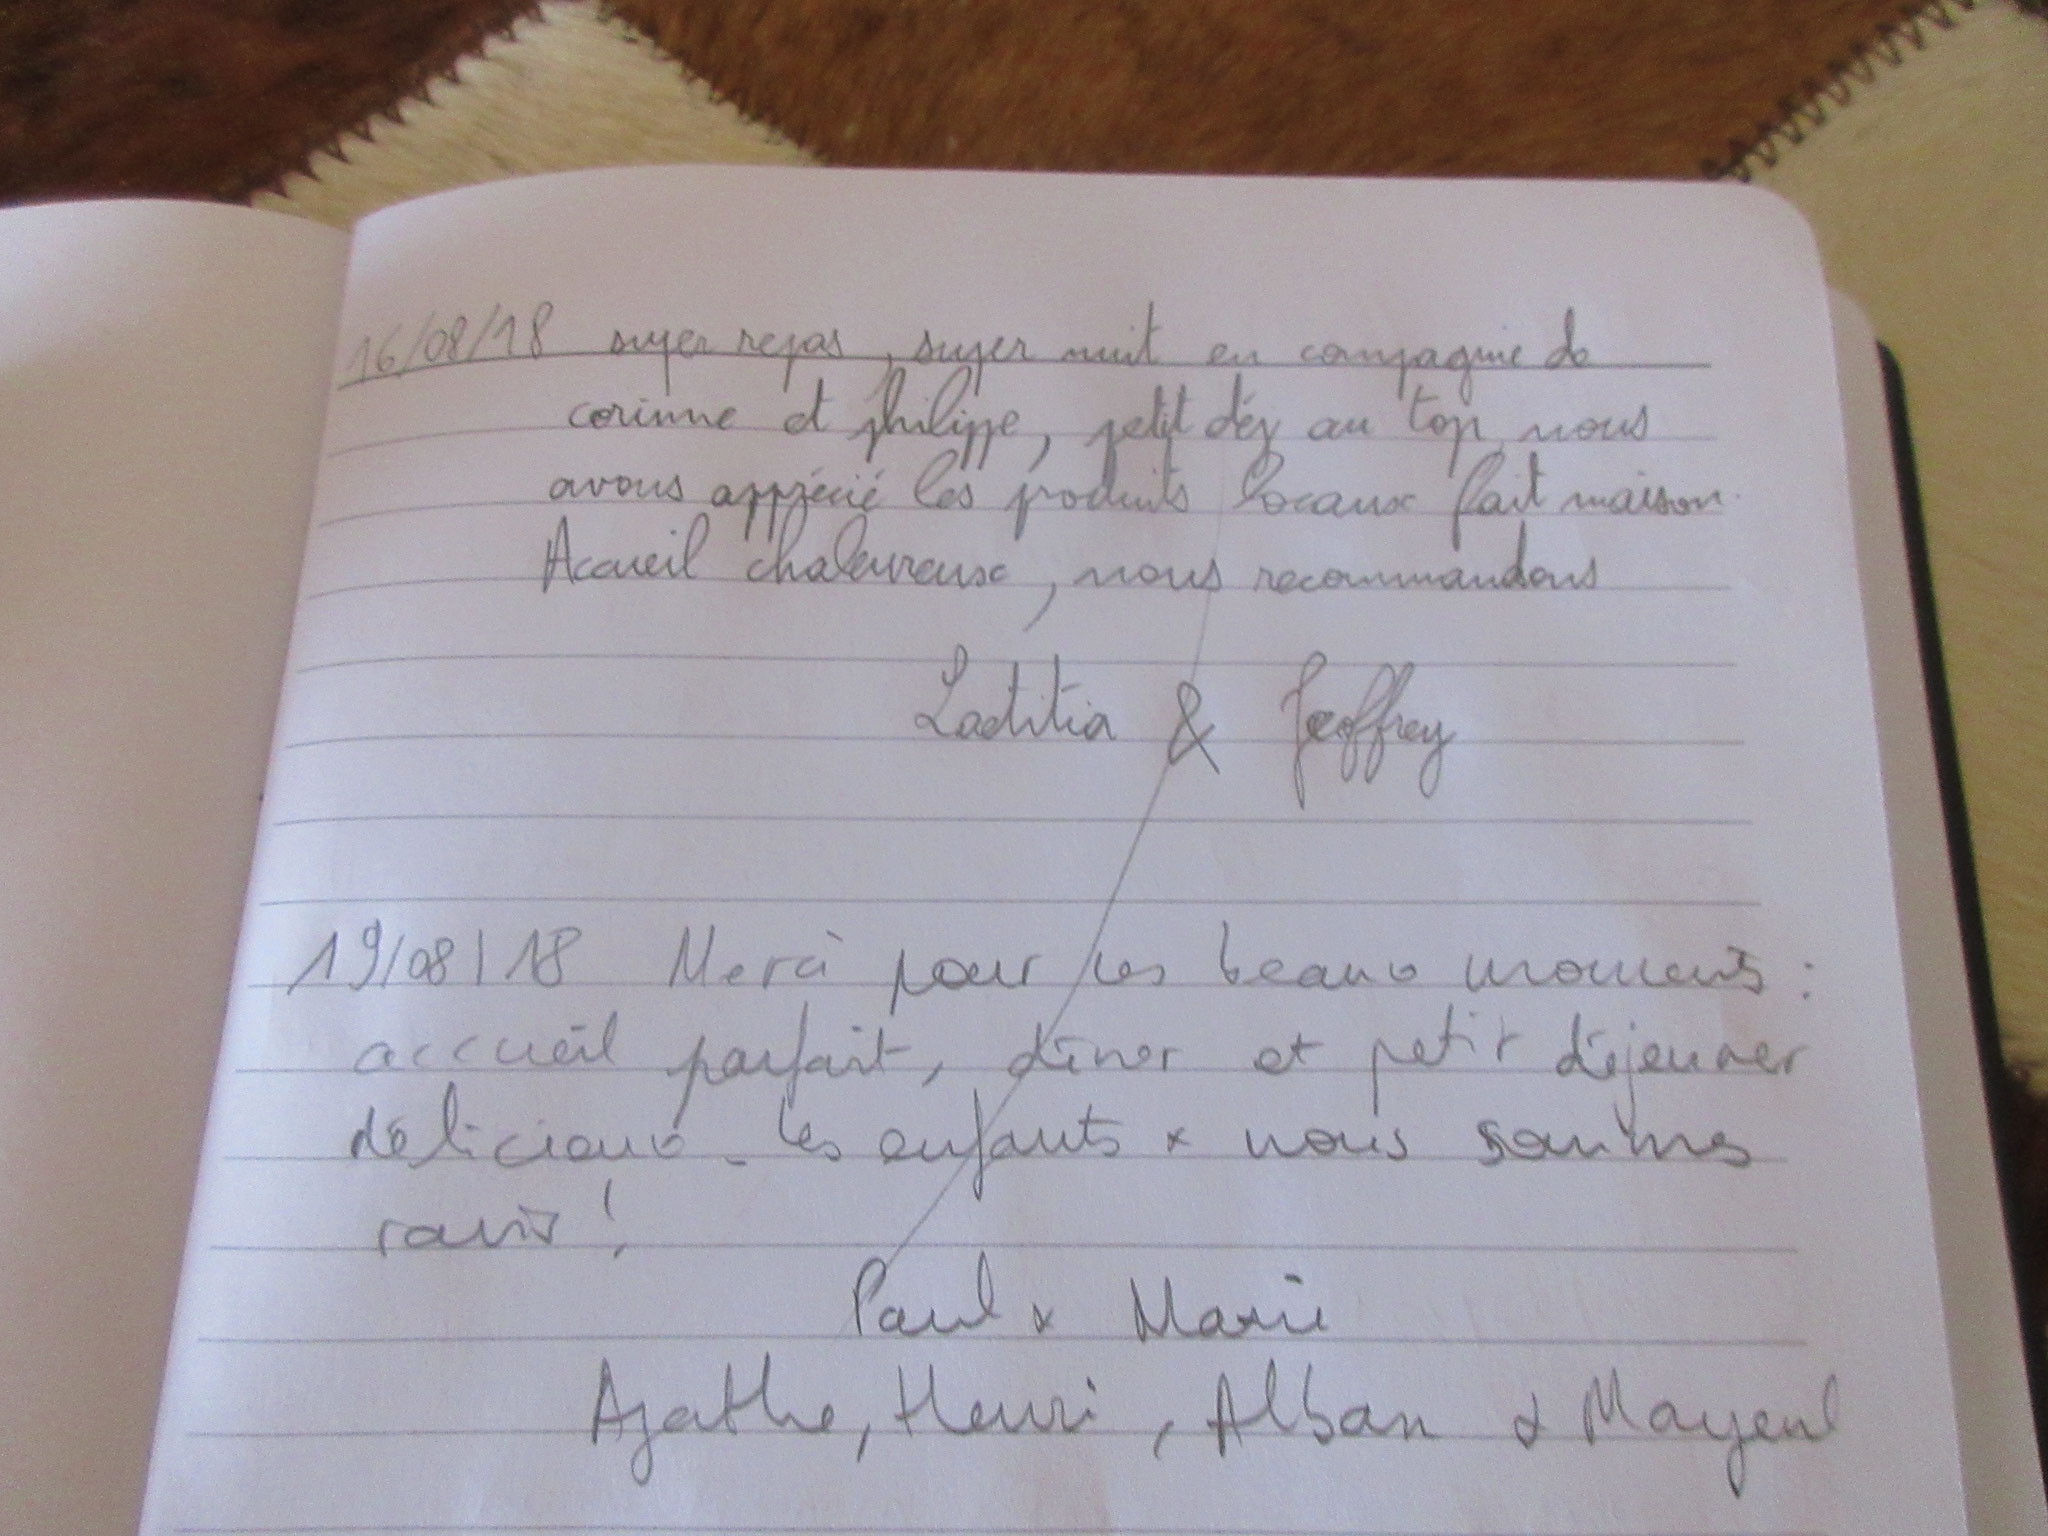 16/08/18 super repas, super nuit en compagnie de
corinne et philippe, petit déj au top, nous
avons apprécié les produits locaux fait maison.
Accueil chaleureux, nous recommandons
Laetitia & Geoffrey
19/08/18 Merci pour les beaux moments :
accueil parfait, dîner et petit déjeuner
délicieux. les enfants & nous sommes
ravis !
Paul & Marie
Agathe, Henri, Alban & Mayeul